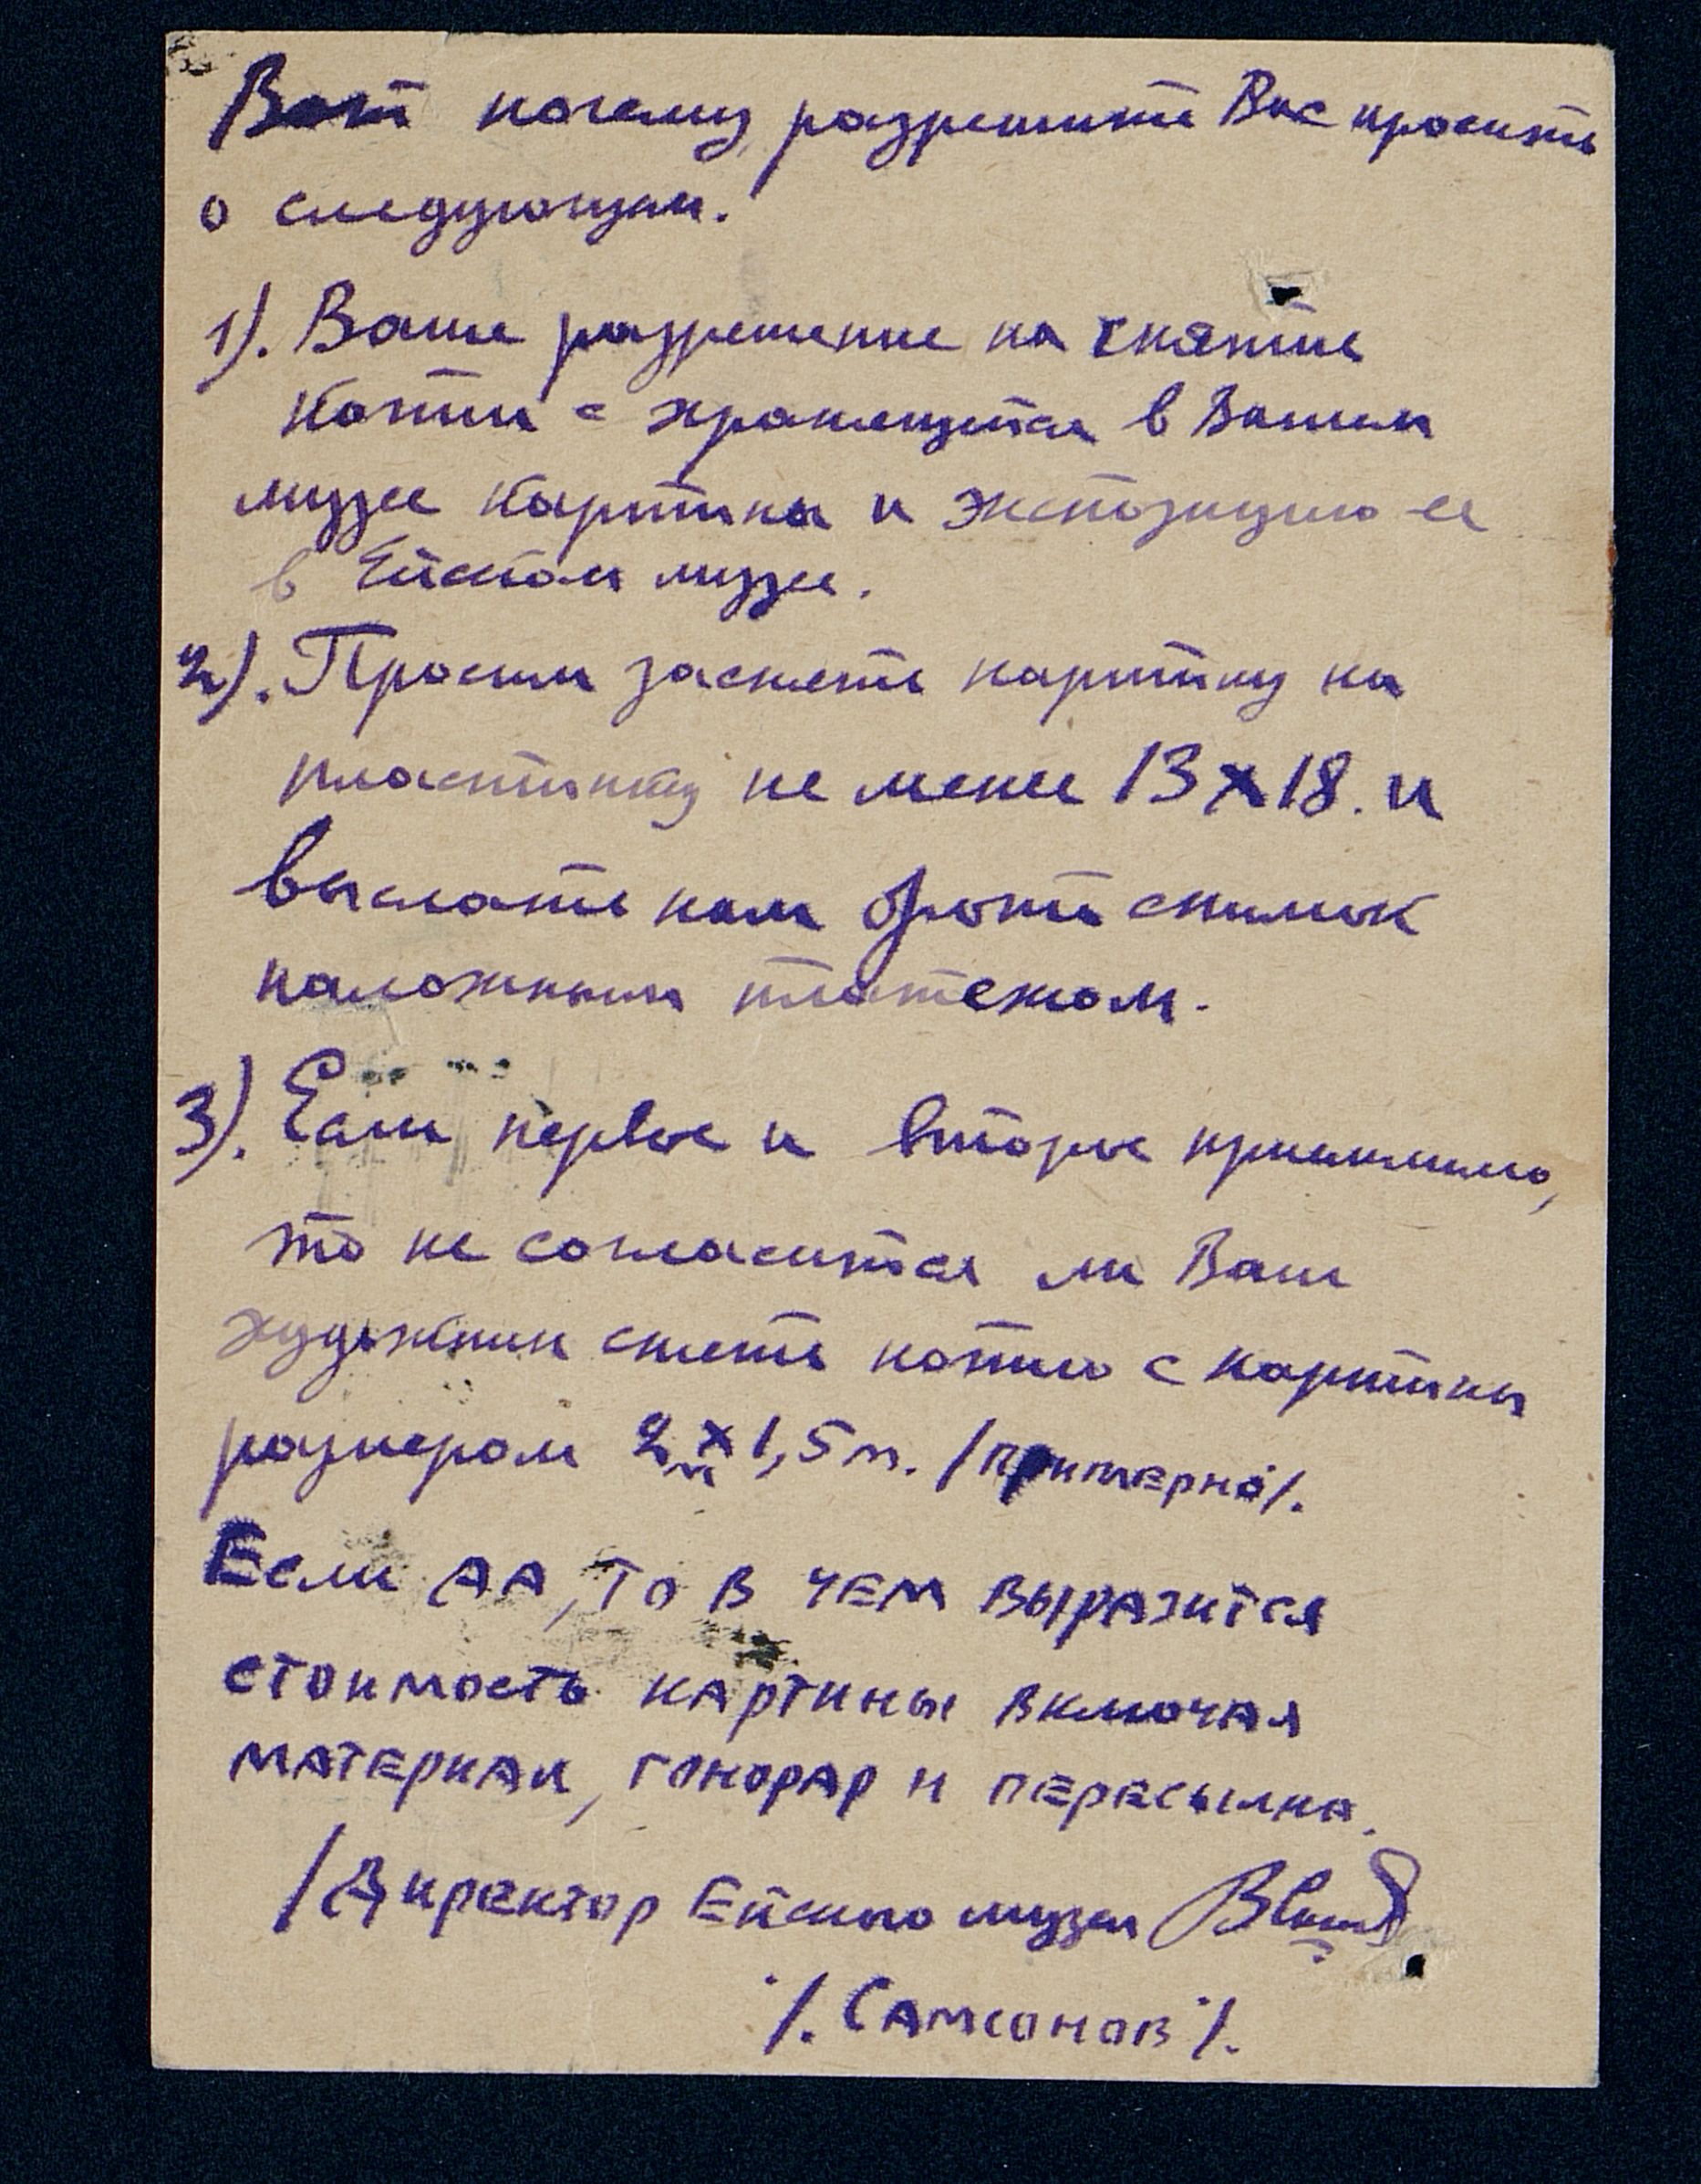 Вот почему, разрешите Вас просить
о следующем.
1). Ваше разрешение на снятие
копии с хранящейся в Вашем
музее картины и экспозицию ее
в Ейском музее.
2). Просим заснять картину на
пластинку не менее 13 х 18. и
выслать нам фото снимок
наложным платежом.
3). Если первое и второе приемлемо,
то не согласится ли Ваш
художник снять копию с картины
размером 2м х 1,5 м. /примерно/.
Если да, то в чем выразится
стоимость картины включая
материал, гонорар и пересылка.
/Директор Ейского музея
/. Самсонов /.